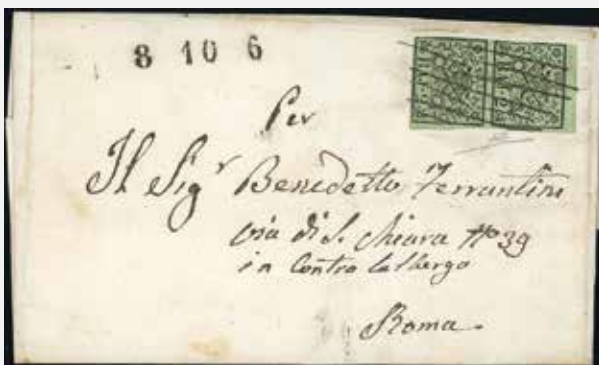 8 10 6
Per
Il Sigr Benedetto Ferrantini
via di S. Chiara No 39
in Contro l'albergo
Roma.